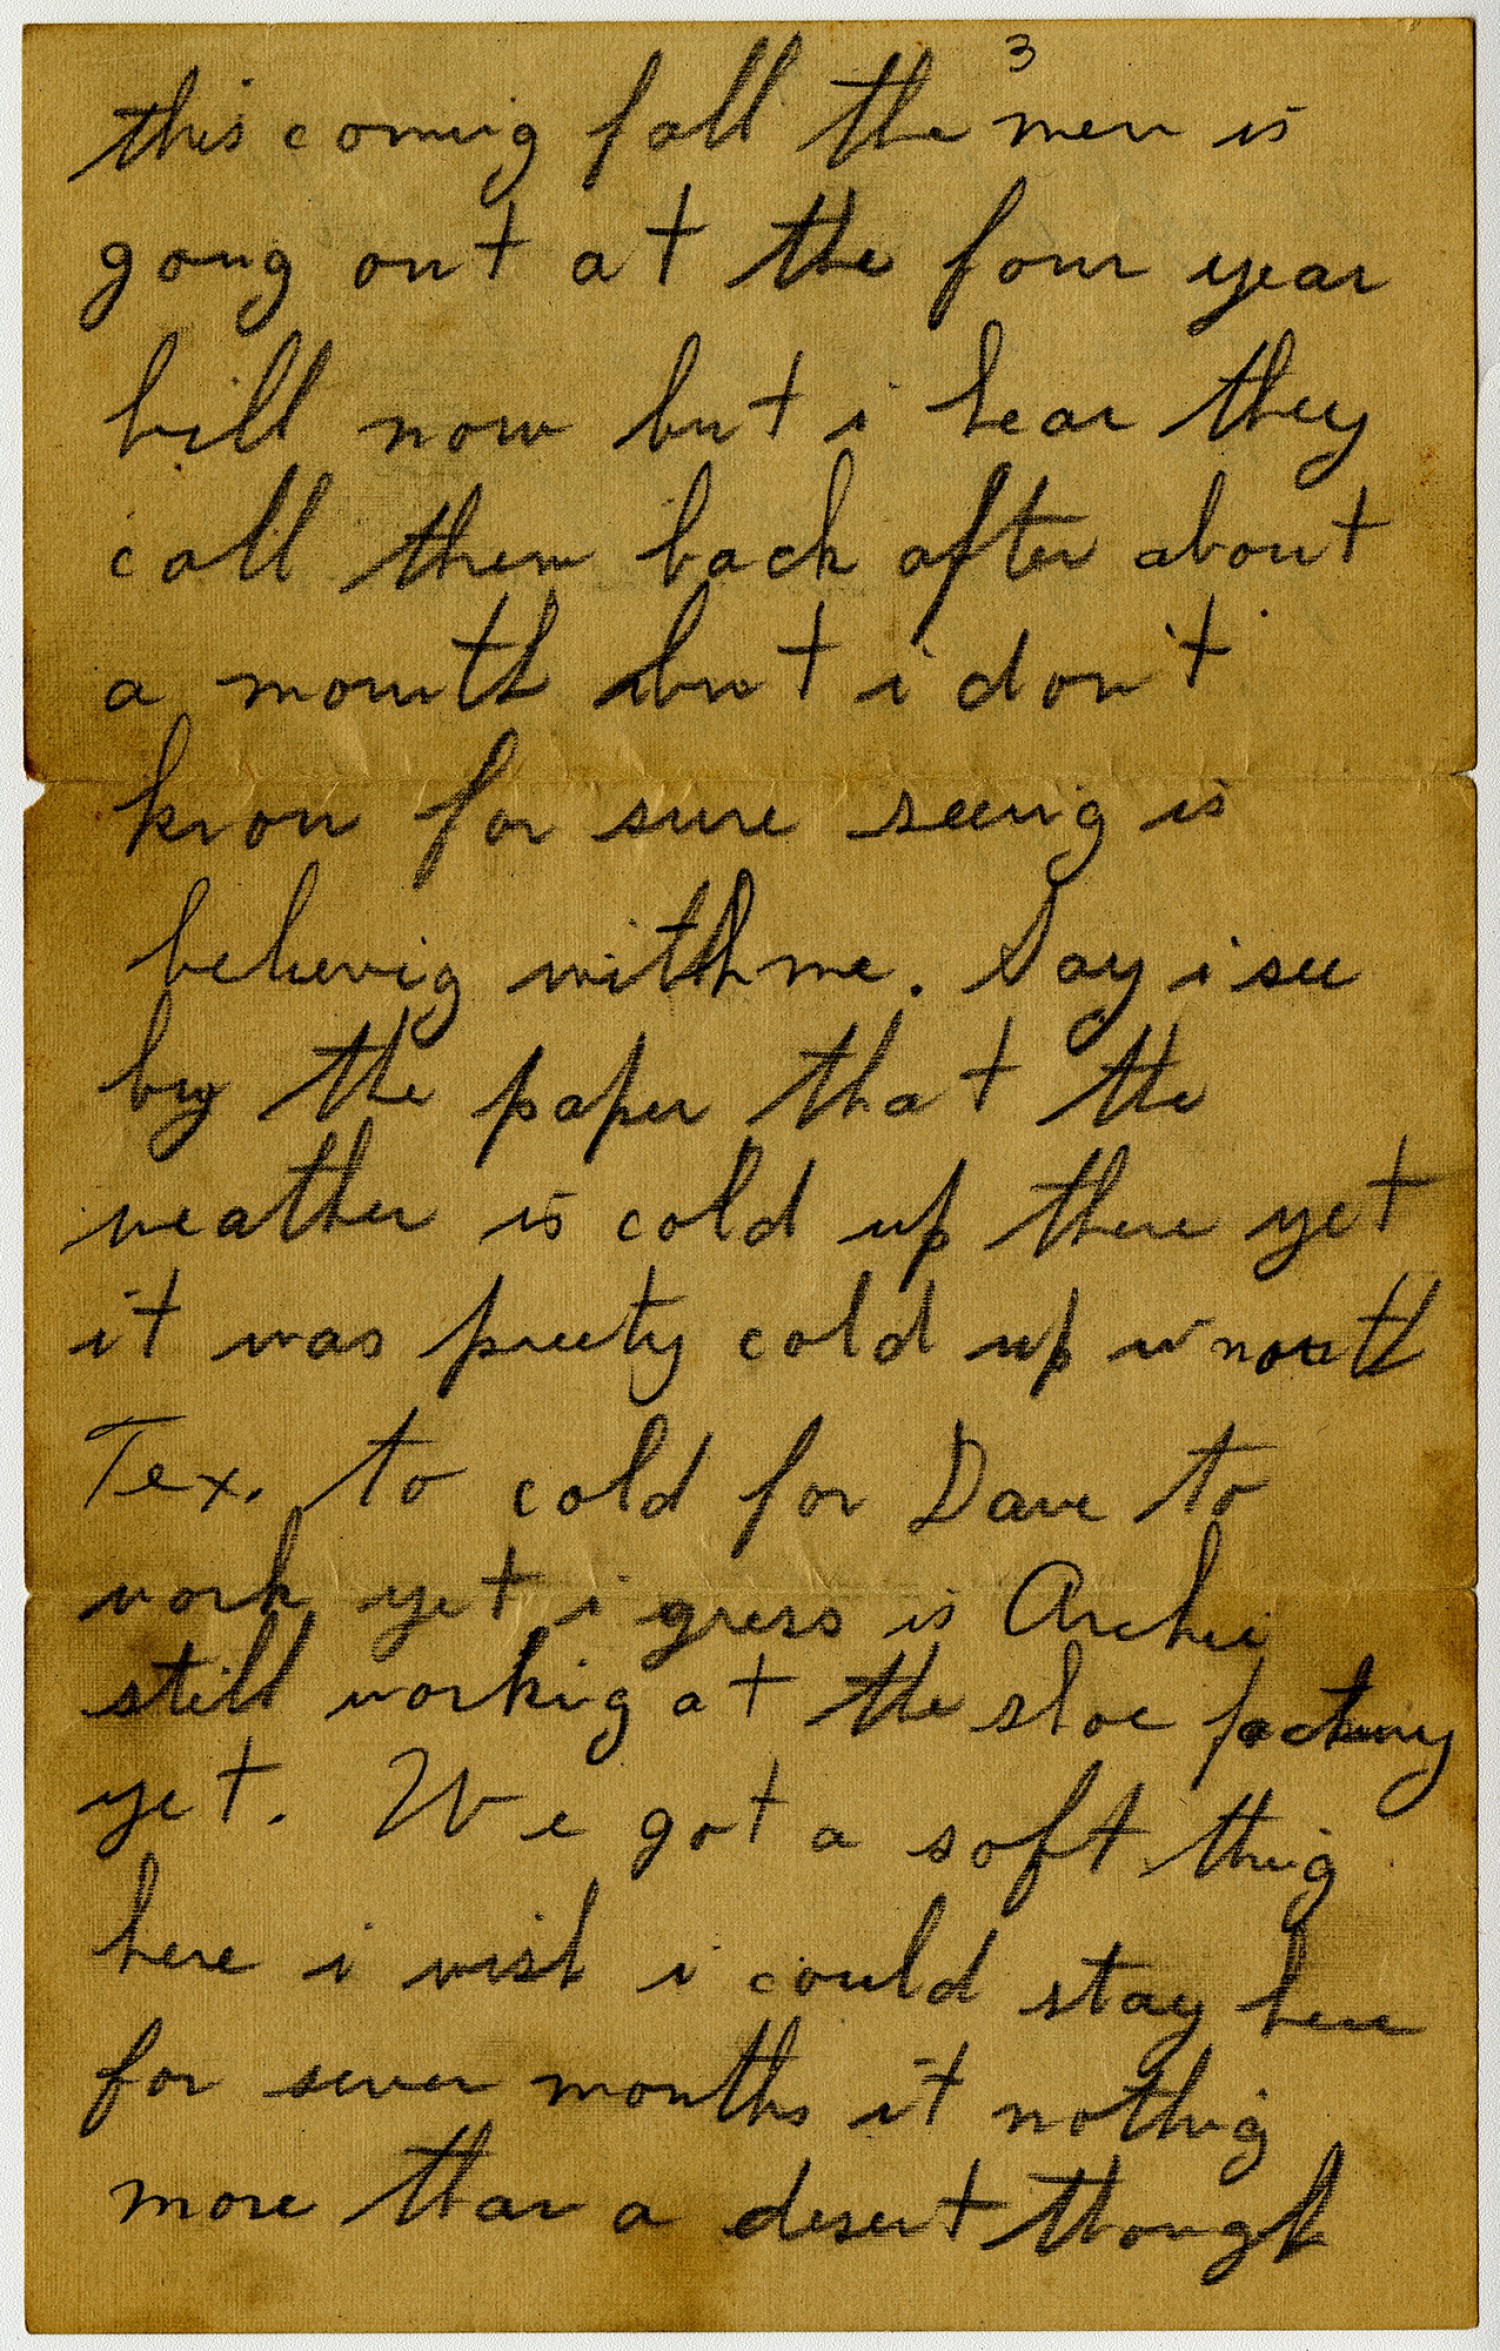 3
this coming fall the men is
going out at the four year
bill now but i hear they
call them back after about
a month but i don't
know for sure seeing is
believig with me. Say i see
by the paper that the
weather is cold up there yet
it was pretty cold up in north
Tex. to cold for Dave to
work yet i guess is Archie
still workig at the shoe factory
yet. We got a soft thing
here i wish i could stay here
for seven months it nothig
more than a desert though